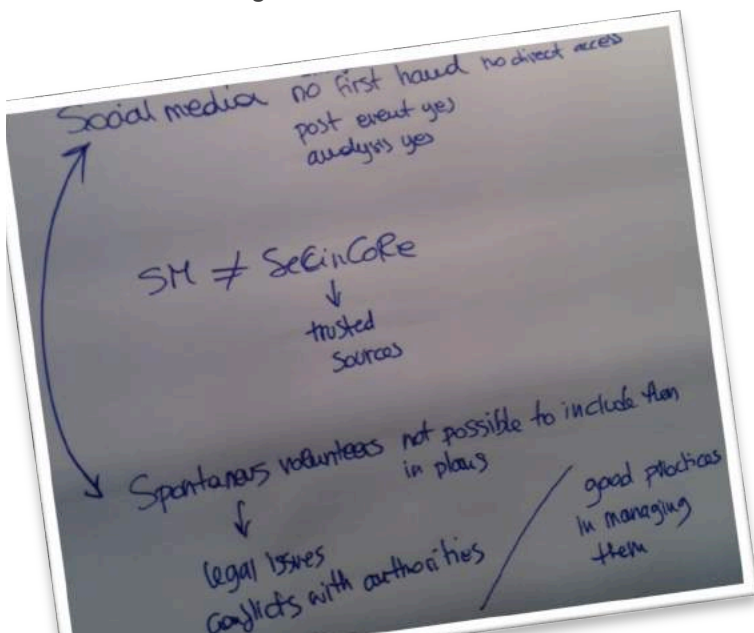 Social media no first hand no direct access
post event yes
analysis yes
SM ≠ SeCinCoRe
↓
trusted
sources
Spontaneus volunteers not possible to include them
in plans
↓
legal issues
conflicts with authorities
good practices
in managing
them